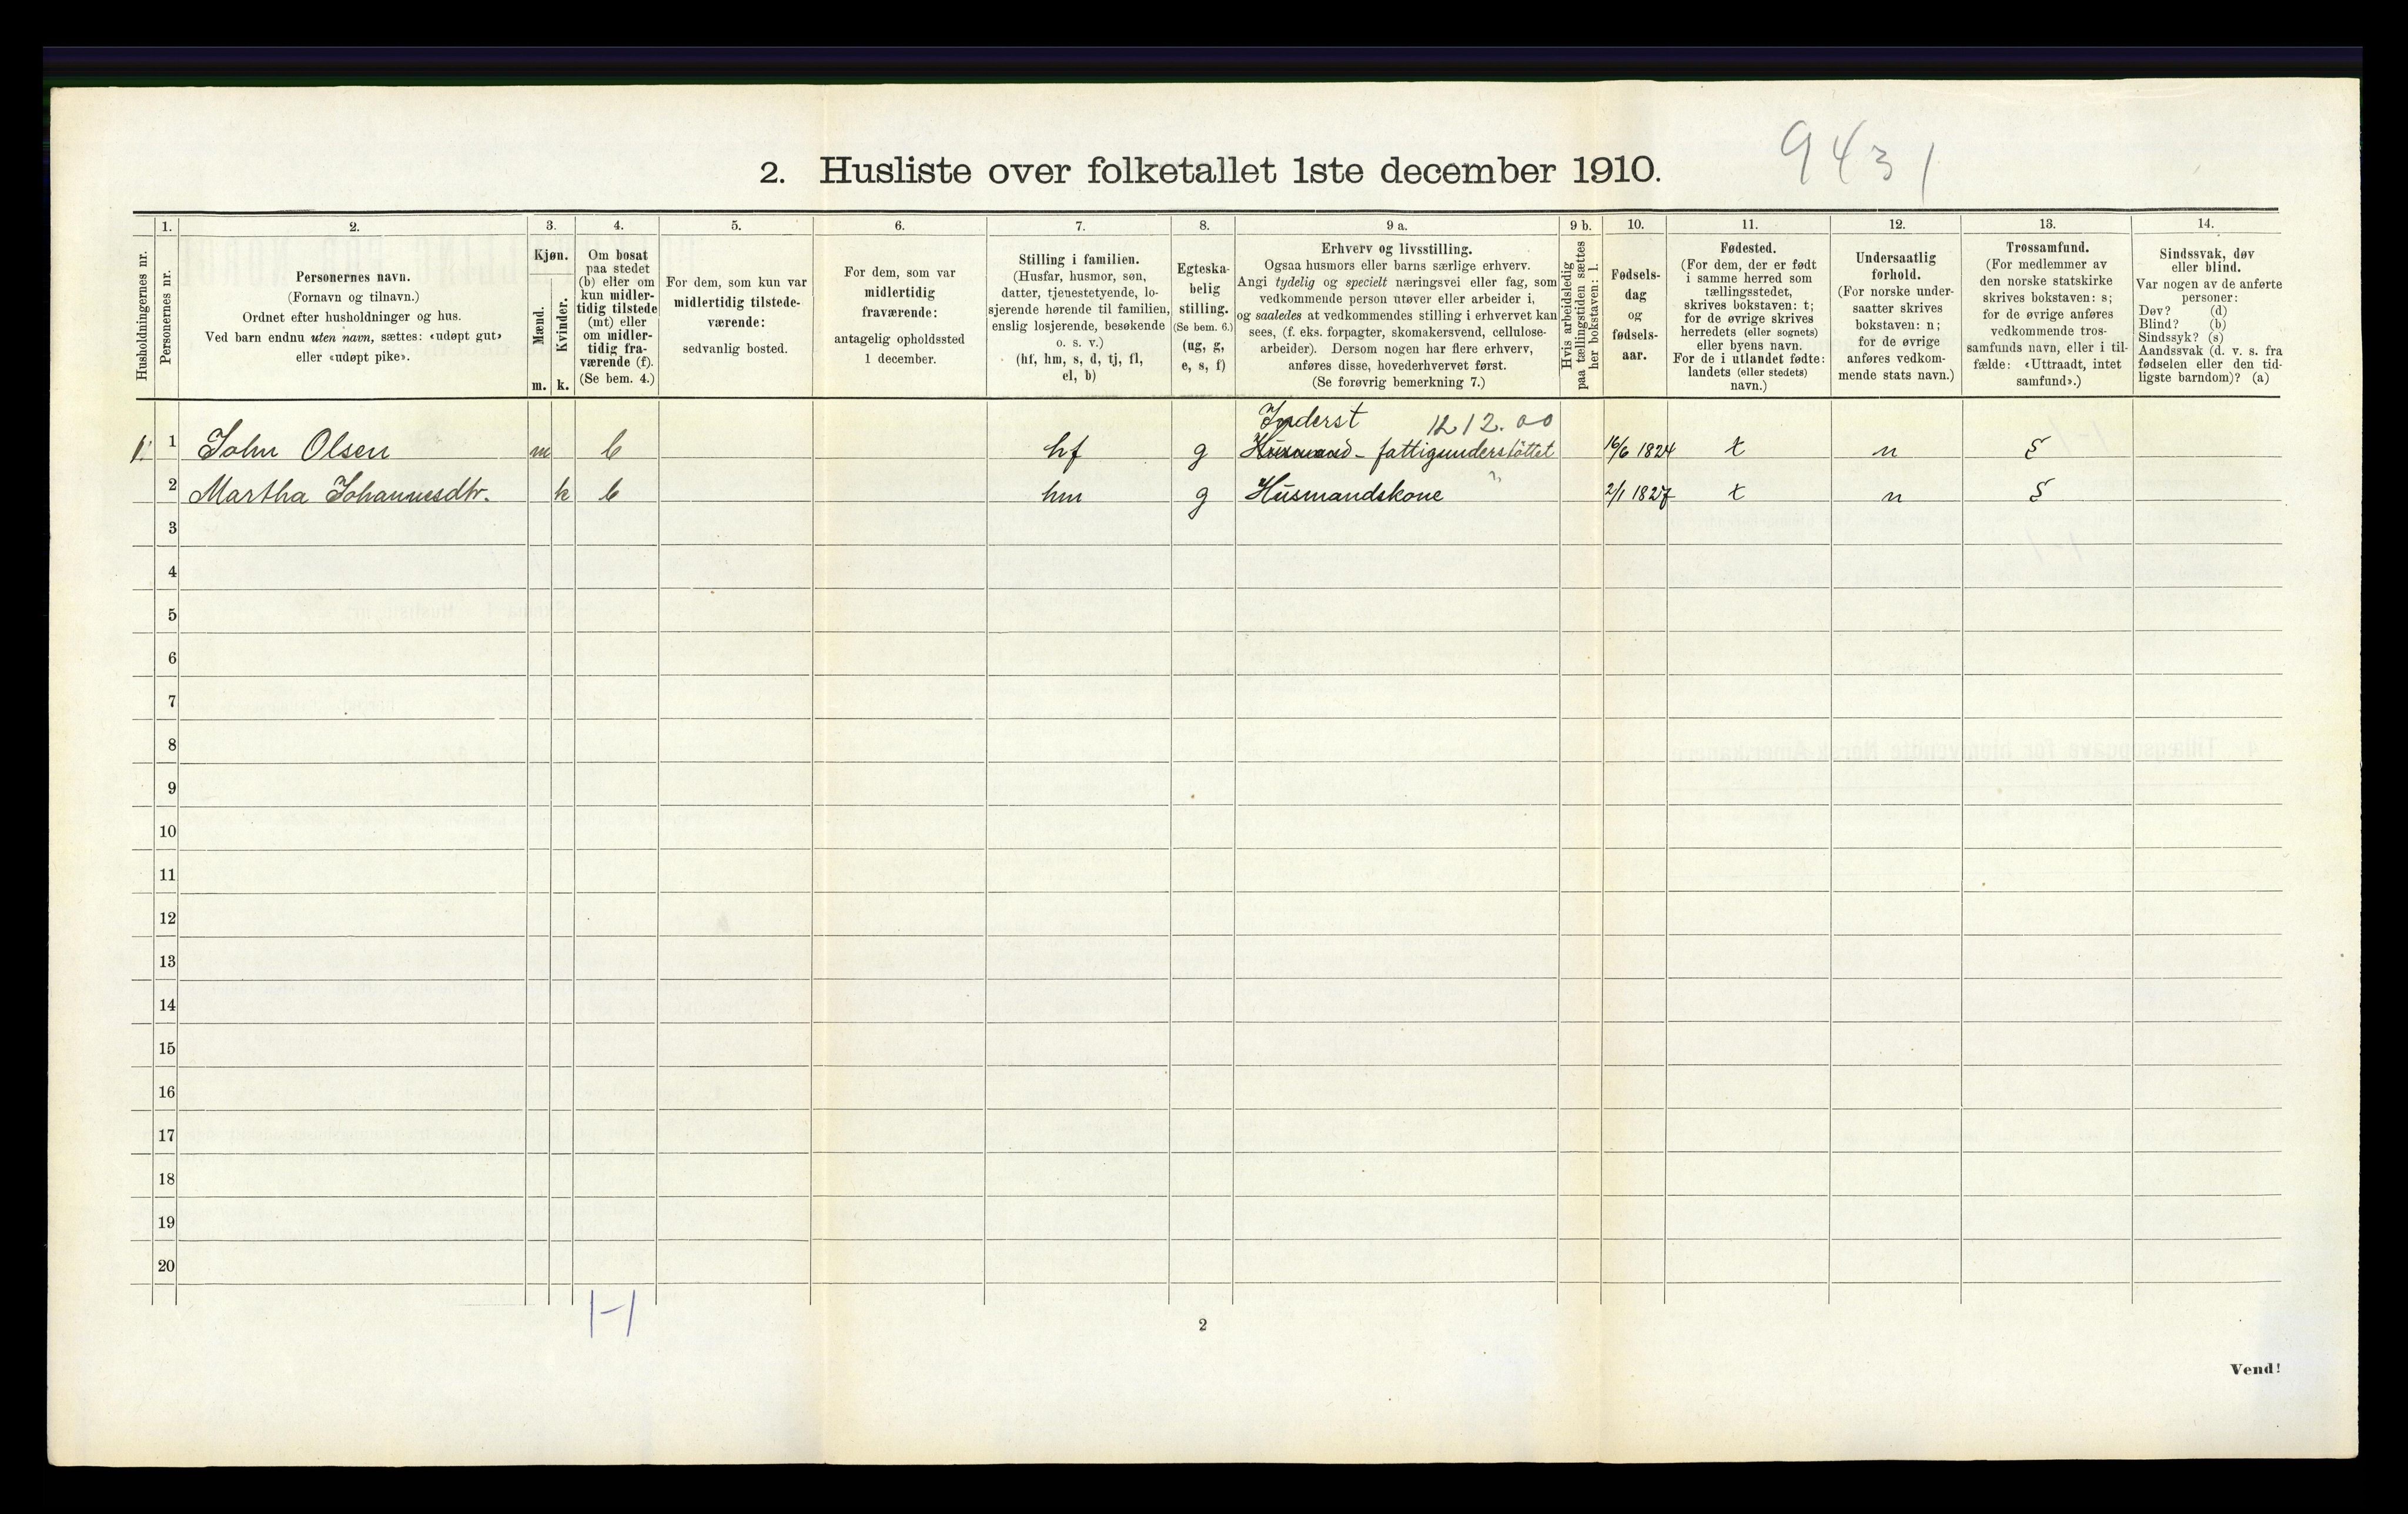 9431
2. Husliste over folketallet 1ste december 1910.
Husholdningernes nr.
1.
Personernes nr.
2.
Personernes navn.
(Fornavn og tilnavn.)
Ordnet efter husholdninger og hus.
Ved barn endnu uten navn, sættes: «udøpt gut»
eller «udøpt pike».
3.
Kjøn.
Mænd.
m.
Kvinder.
k.
4.
Om bosat
paa stedet
(b) eller om
kun midler-
tidig tilstede
(mt) eller
om midler-
tidig fra-
værende (f).
(Se bem. 4.)
5.
For dem, som kun var
midlertidig tilstede-
værende:
sedvanlig bosted.
6.
For dem, som var
midlertidig
fraværende:
antagelig opholdssted
1 december.
7.
Stilling i familien.
(Husfar, husmor, søn,
datter, tjenestetyende, lo-
sjerende hørende til familien,
enslig losjerende, besøkende
o. s. v.)
(hf, hm, s, d, tj, fl,
el, b)
8.
Egteska-
belig
stilling.
(Se bem. 6.)
(ug, g,
e, s, f)
9 a.
Erhverv og livsstilling.
Ogsaa husmors eller barns særlige erhverv.
Angi tydelig og specielt næringsvei eller fag, som
vedkommende person utøver eller arbeider i,
og saaledes at vedkommendes stilling i erhvervet kan
sees, (f. eks. forpagter, skomakersvend, cellulose-
arbeider). Dersom nogen har flere erhverv,
anføres disse, hovederhvervet først.
(Se forøvrig bemerkning 7.)
9 b.
Hvis arbeidsledig
paa tællingstiden sættes
her bokstaven: l.
10.
Fødsels-
dag
og
fødsels-
aar.
11.
Fødested.
(For dem, der er født
i samme herred som
tællingsstedet,
skrives bokstaven: t;
for de øvrige skrives
herredets (eller sognets)
eller byens navn.
For de i utlandet fødte:
landets (eller stedets)
navn.)
12.
Undersaatlig
forhold.
(For norske under-
saatter skrives
bokstaven: n;
for de øvrige
anføres vedkom-
mende stats navn.)
13.
Trossamfund.
(For medlemmer av
den norske statskirke
skrives bokstaven: s;
for de øvrige anføres
vedkommende tros-
samfunds navn, eller i til-
fælde: «Uttraadt, intet
samfund».)
14.
Sindssvak, døv
eller blind.
Var nogen av de anførte
personer:
Døv? (d)
Blind? (b)
Sindssyk? (s)
Aandssvak (d. v. s. fra
fødselen eller den tid-
ligste barndom)? (a)
Inderst 1212.00
1. 1 John Olsen m b hf g Husmand - fattigunderstöttet 16/6 1824 t n s
2 Martha Johannesdtr. k b hm g Husmandskone ? 2/1 1827 t n s
3
4
5
6
7
8
9
10
11
12
13
14
15
16
17
18
19
20
1-1
2
Vend!